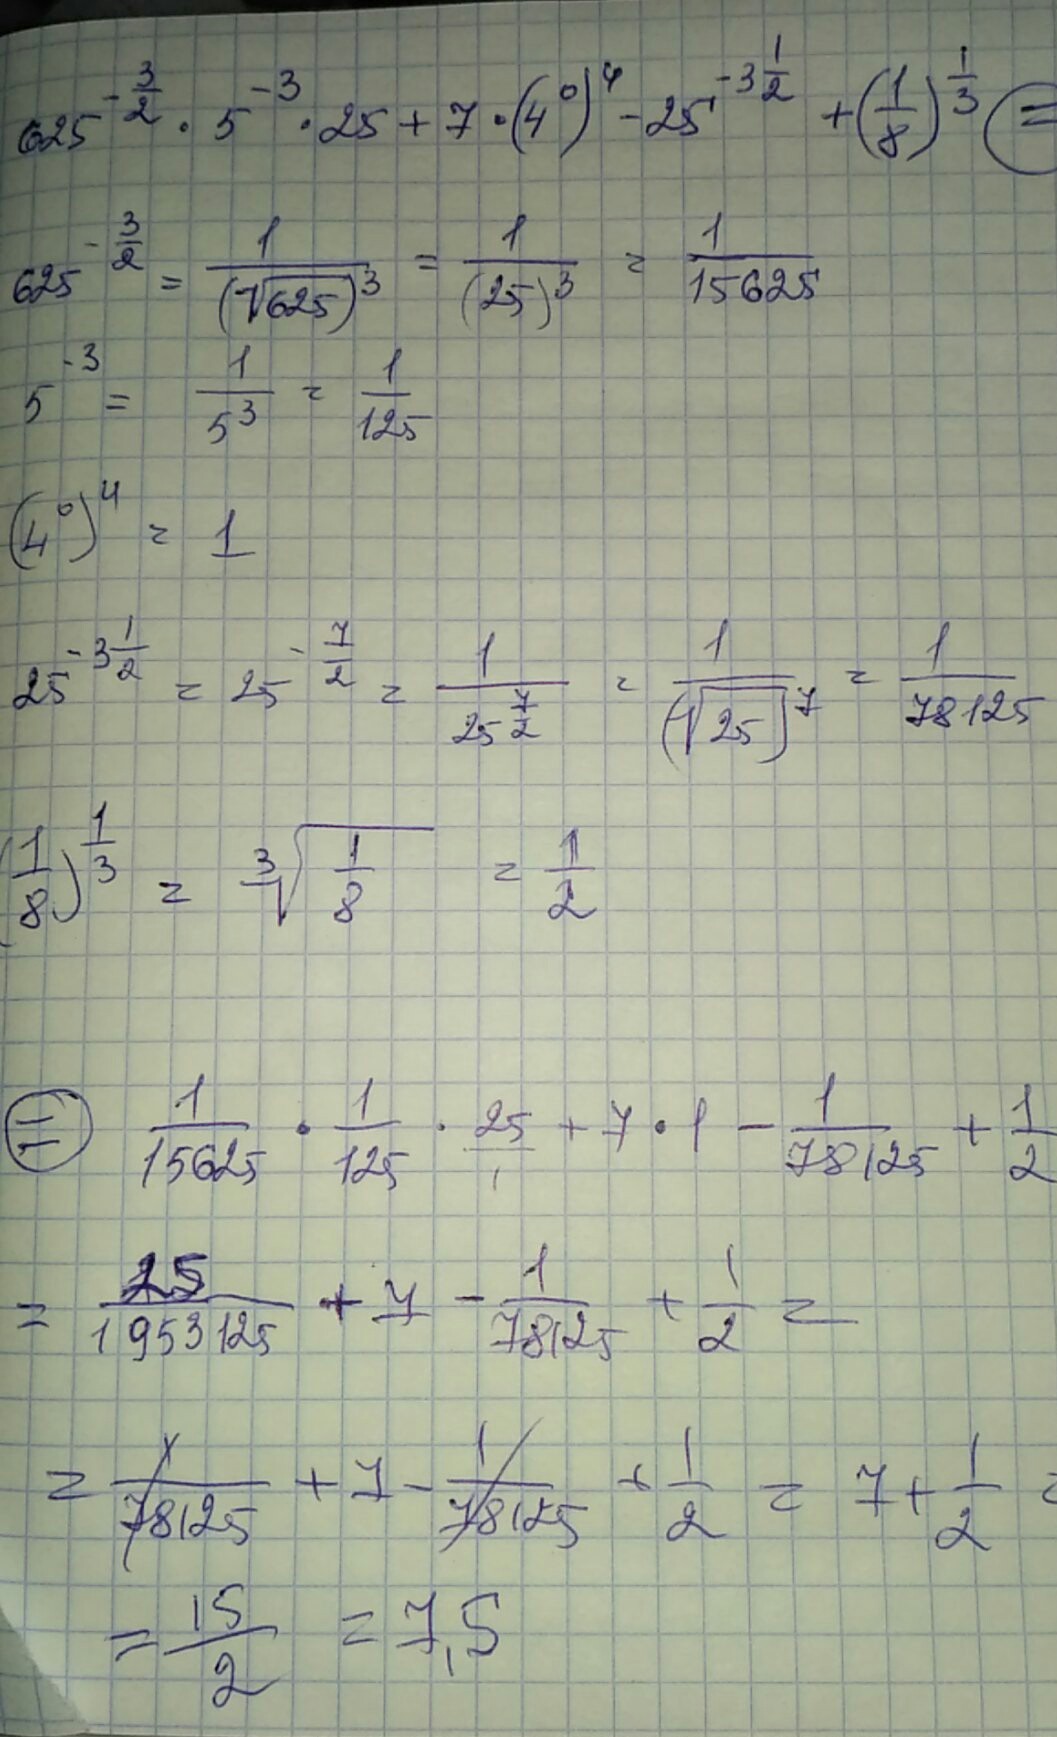 625^(-3/2) · 5^(-3) · 25 + 7 · (4^0)^4 - 25^(-3 1/2) + (1/8)^(1/3) =
625^(-3/2) = 1/(√625)^3 = 1/(25)^3 = 1/15625
5^(-3) = 1/5^3 = 1/125
(4^0)^4 = 1
25^(-3 1/2) = 25^(-7/2) = 1/25^(7/2) = 1/(√25)^7 = 1/78125
(1/8)^(1/3) = ∛(1/8) = 1/2
= 1/15625 · 1/125 · 25/1 + 7 · 1 - 1/78125 + 1/2
= 25/1953125 + 7 - 1/78125 + 1/2 =
= 1/78125 + 7 - 1/78125 + 1/2 = 7 + 1/2 =
= 15/2 = 7,5